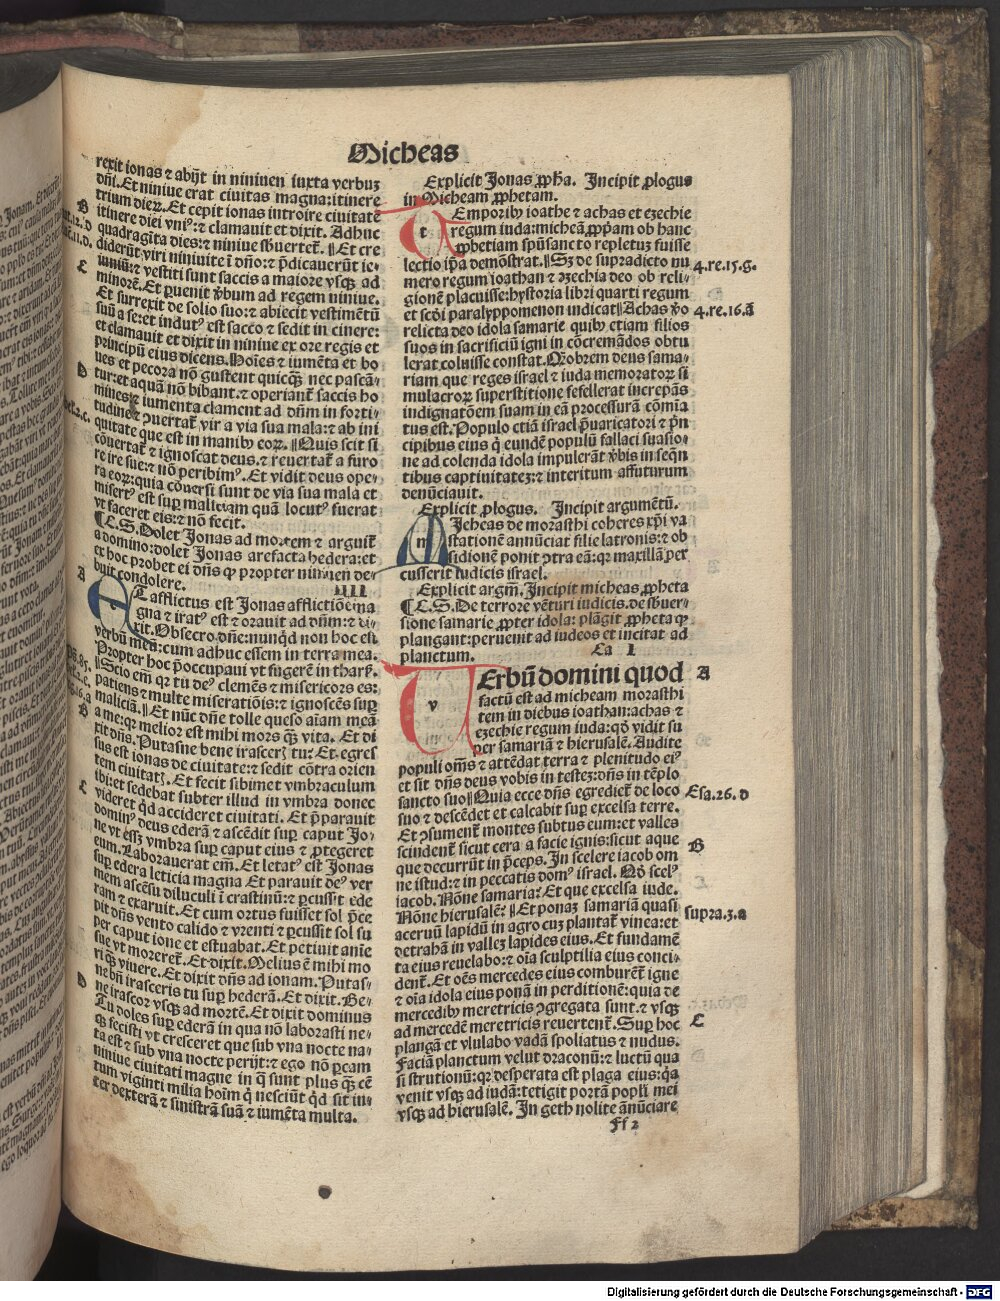 Micheas
rexit ionas ⁊ abijt in niniuen iuxta verbuꝫ
dñi. Et niniue erat ciuitas magna: itinere
trium dierꝝ. Et cepit ionas introire ciuitatē
itinere diei vniꝰ: ⁊ clamauit et dixit. Adhuc
quadragīta dies: ⁊ niniue sb̄uertet̄. ¶ Et cre
diderūt viri niniuite ī dño: ⁊ p̄dicauerūt ie⸗
iuniū: ⁊ vestiti sunt saccis a maiore vsqꝫ ad
minorē. Et ꝑuenit v̄bum ad regem niniue.
Et surrexit de solio suo: ⁊ abiecit vestimētū
suū a se: et indutꝰ est sacco ⁊ sedit in cinere:
et clamauit et dixit in niniue ex ore regis et
principū eius dicens. Hoīes ⁊ iumēta et bo
ues et pecora nō gustent quicq̄ꝫ nec pascā⸗
tur: et aquā nō bibant. ⁊ operiant̄ saccis ho
mines: ⁊ iumenta clament ad dñm in forti⸗
tudine ⁊ ꝯuertat̄ vir a via sua mala: ⁊ ab ini
quitate que est in manibꝰ eoꝝ. ¶ Quis scit si
cōuertat̄ ⁊ ignoscat deus. ⁊ reuertat̄ a furo
re ire sue: ⁊ nō peribimꝰ. Et vidit deus ope⸗
ra eoꝝ: quia cōuersi sunt de via sua mala et
misertꝰ est suꝑ maliciam quā locutꝰ fuerat
vt faceret eis: ⁊ nō fecit.
¶ C. S. Dolet Jonas ad mortem ⁊ arguit̄
a domino: dolet Jonas arefacta hedera: et
ex hoc probet ei dñs ꝙ propter niniuen de⸗
buit condolere. IIII
Et afflictus est Jonas afflictiōe ma
gna ⁊ iratꝰ est ⁊ orauit ad dñm: ⁊ di⸗
xit. Obsecro dñe: nunqd̄ non hoc est
verbū meū: cum adhuc essem in terra mea.
Propter hoc p̄occupaui vt fugerē in tharß.
¶ Scio em̄ qꝛ tu deꝰ clemēs ⁊ misericors es:
patiens ⁊ multe miseratiōis: ⁊ ignoscēs suꝑ
maliciā. ¶ Et nūc dñe tolle queso aīam meā
a me: qꝛ melior est mihi mors q̄ꝫ vita. Et di
xit dñs. Putasne bene irascerꝫ tu: Et egres
sus est ionas de ciuitate: ⁊ sedit cōtra orien
tem ciuitatꝫ. Et fecit sibimet vmbraculum
ibi: et sedebat subter illud in vmbra donec
videret qd̄ accideret ciuitati. Et p̄parauit
dominꝰ deus ederā ⁊ ascēdit suꝑ caput Jo⸗
ne vt esꝫ vmbra suꝑ caput eius ⁊ ꝓtegeret
eum. Laborauerat em̄. Et letatꝰ est Jonas
suꝑ edera leticia magna Et parauit deꝰ ver
mem ascēsu diluculi ī crastinū: ⁊ ꝑcussit ede
ram ⁊ exaruit. Et cum ortus fuisset sol p̄ce
pit dñs vento calido ⁊ vrenti ⁊ ꝑcussit sol su
per caput ione et estuabat. Et petiuit anīe
sue vt moreret̄. Et dixit. Melius ē mihi mo
ri q̄ꝫ viuere. Et dixit dñs ad ionam. Putas⸗
ne bn̄ irasceris tu suꝑ hederā. Et dixit. Be⸗
ne irascor vsqꝫ ad mortē. Et dixit dominus
Tu doles suꝑ ederā in qua nō laborasti ne⸗
qꝫ fecisti vt cresceret que sub vna nocte na⸗
ta est ⁊ sub vna nocte perijt: ⁊ ego nō ꝑcam
niniue ciuitati magne in q̄ sunt plus q̄ꝫ cē
tum viginti milia hoīm q̄ nesciūt qd̄ sit in⸗
ter dexterā ⁊ sinistrā suā ⁊ iumēta multa.
B
C
D
A
B
C
D
Explicit Jonas ꝓpha. Incipit ꝓlogus
in Micheam ꝓphetam.
Temporibꝰ ioathe ⁊ achas et eȝechie
regum iuda: micheā ꝓp̄am ob hanc
ꝓphetiam spūsancto repletuꝫ fuisse
lectio ip̄a demōstrat. ¶ Sꝫ de supradicto nu
mero regum ioathan ⁊ eȝechia deo ob reli⸗
gionē placuisse: hystoria libri quarti regum
et scd̄i paralyppomenon indicat ¶ Achas v̄o
relicta deo idola samarie quibꝰ etiam filios
suos in sacrificiū igni in cōcremādos obtu
lerat coluisse constat. Q̄obrem deus sama⸗
riam que reges israel ⁊ iuda memoratoꝝ si
mulacroꝝ superstitione fefellerat increpās
indignatōem suam in eā processurā cōmia
tus est. Populo etiā israel p̄uaricatori ⁊ p̄n
cipibus eius q̄ eundē populū fallaci suasio⸗
ne ad colenda idola impulerāt v̄bis in seq̄n
tibus captiuitateꝫ: ⁊ interitum affuturum
denūciauit.
Explicit ꝓlogus. Incipit argumētū.
Micheas de morasthi coheres xp̄i va
stationē annūciat filie latronis: ⁊ ob
sidionē ponit ꝯtra eā: qꝛ maxillā ꝑer
cusserit iudicis israel.
Explicit argm̄. Incipit micheas ꝓpheta
¶ C. S. De terrore vēturi iudicis. de sb̄uer⸗
sione samarie ꝓpter idola: plāgit ꝓpheta ⁊
plangant: peruenit ad iudeos et incitat ad
planctum. Ca I
Verbū domini quod
factū est ad micheam morasthi
tem in diebus ioathan: achas ⁊
eȝechie regum iuda: qd̄ vidit su
per samariā ⁊ hierusalē. Audite
populi om̄s ⁊ attēdat terra ⁊ plenitudo eiꝰ
et sit dñs deus vobis in testeꝫ: dñs in tēplo
sancto suo ¶ Quia ecce dñs egrediet̄ de loco
suo ⁊ descēdet et calcabit suꝑ excelsa terre.
Et ꝯsument̄ montes subtus eum: et valles
scindent̄ sicut cera a facie ignis: sicut aque
que decurrūt in p̄ceps. In scelere iacob om
ne istud: ⁊ in peccatis domꝰ israel. Qd̄ scelꝰ
iacob. Nōne samaria: Et que excelsa iude.
Nōne hierusalē: ¶ Et ponaꝫ samariā quasi
aceruū lapidū in agro cuꝫ plantat̄ vinea: et
detrahā in valleꝫ lapides eius. Et fundamē
ta eius reuelabo: ⁊ oīa sculptilia eius conci⸗
dent̄. Et oēs mercedes eius comburēt̄ igne
⁊ oīa idola eius ponā in perditionē: quia de
mercedibꝰ meretricis ꝯgregata sunt. ⁊ vsqꝫ
ad mercedē meretricis reuertent̄. Suꝑ hoc
plangā et vlulabo vadā spoliatus ⁊ nudus.
Faciā planctum velut draconū: ⁊ luctū qua
si strutionū: qꝛ desperata est plaga eius: q̄a
venit vsqꝫ ad iudā: tetigit portā popl̄i mei
vsqꝫ ad hierusalē. In geth nolite ānūciare
4. re. 15. g.
4. re. 16. a
A
Esa. 26. d
B
supra. 3. a
C
Ff 2
Digitalisierung gefördert durch die Deutsche Forschungsgemeinschaft - DFG